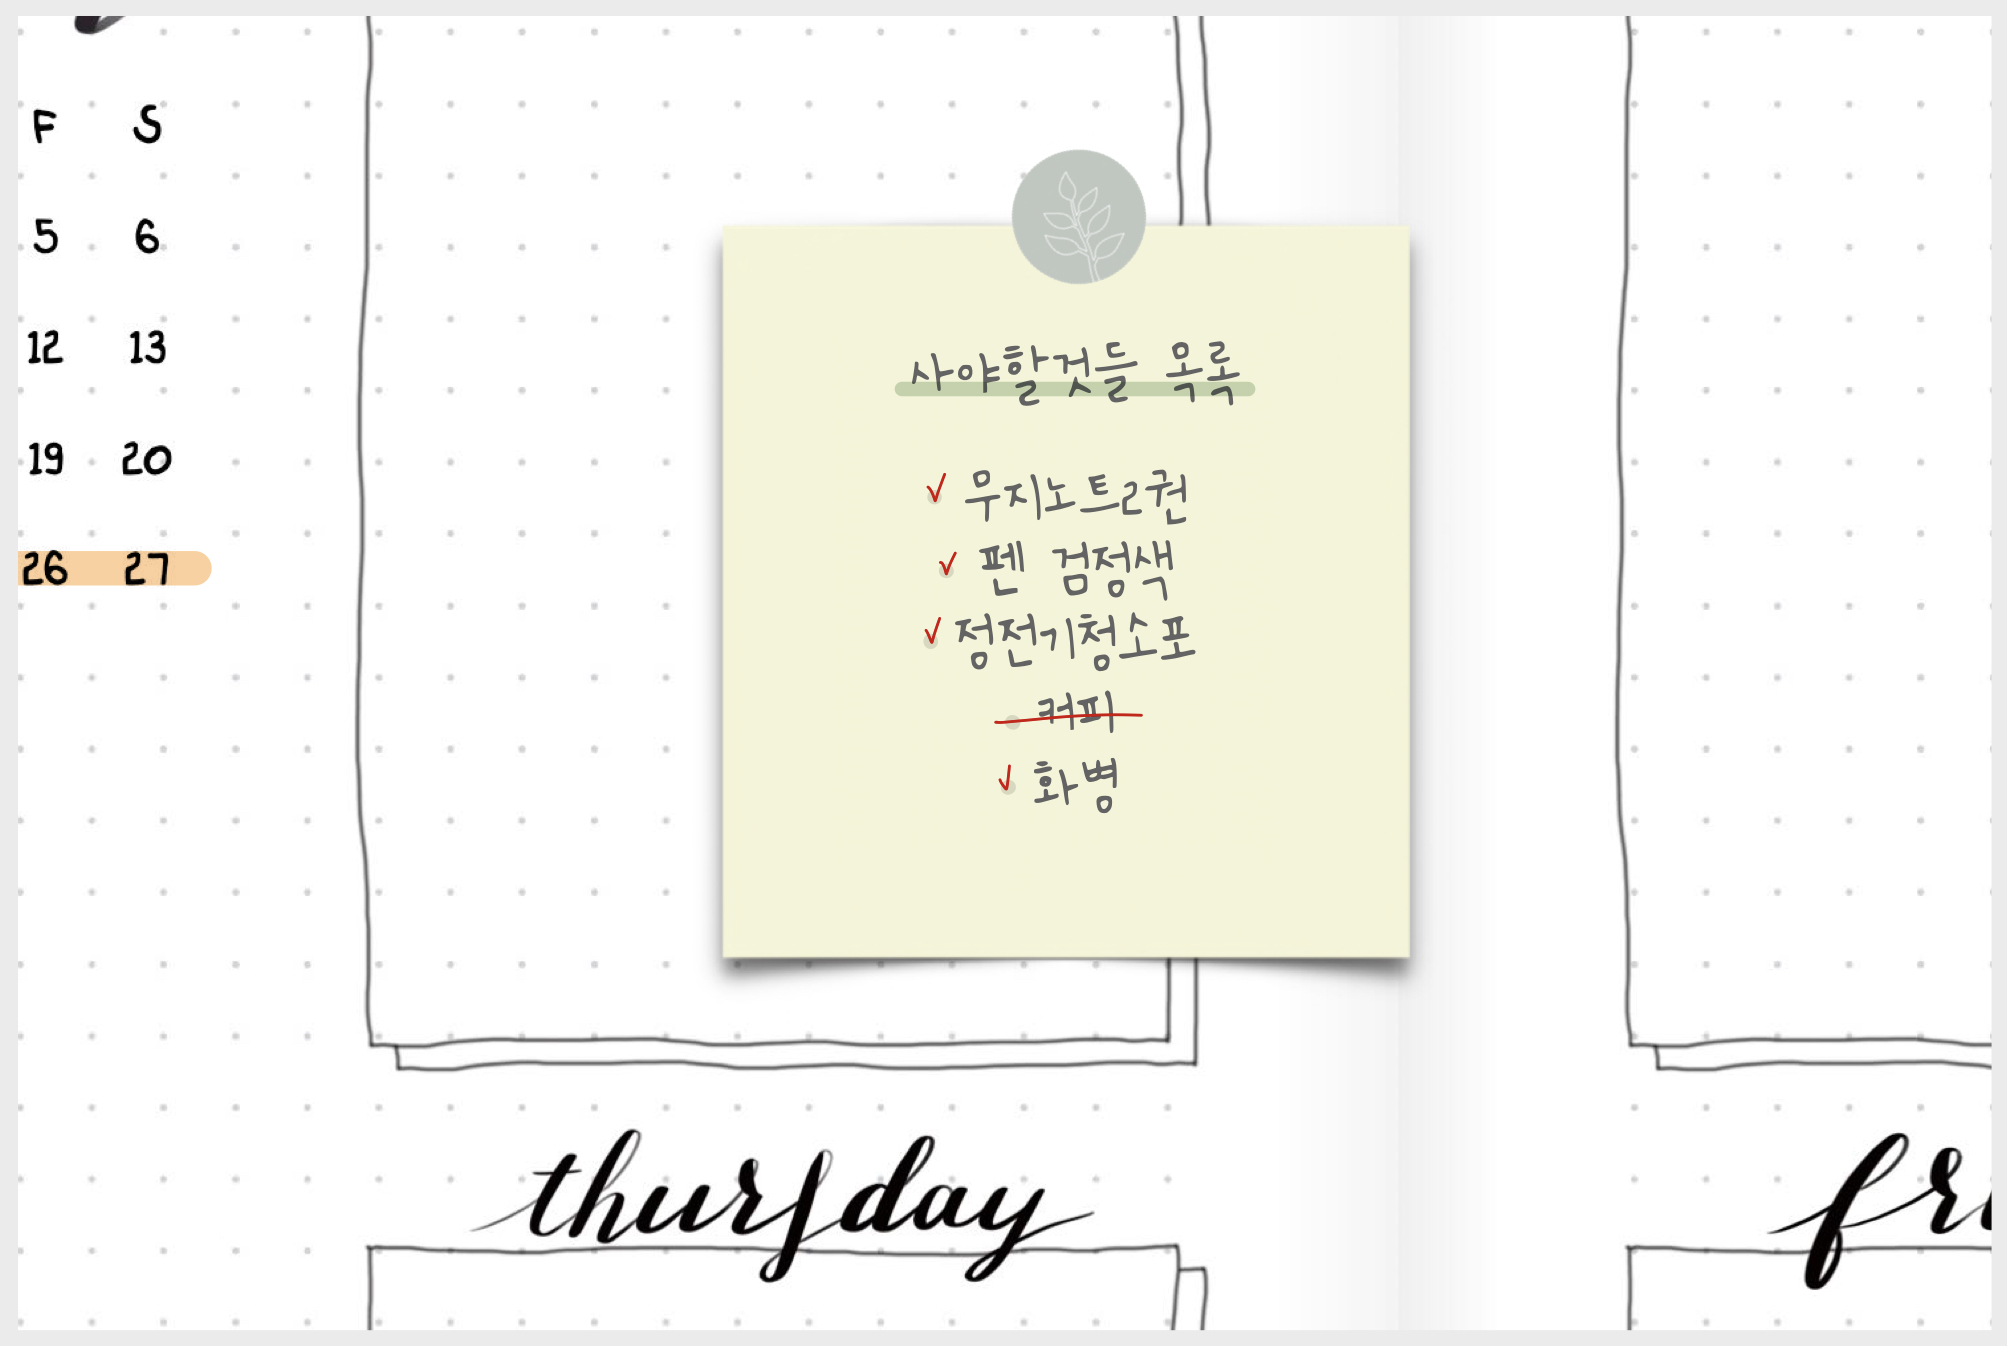 F S
5 6
12 13
19 20
26 27
사야할것들 목록
무지노트2권
펜 검정색
정전기청소포
커피
화병
thursday
fri